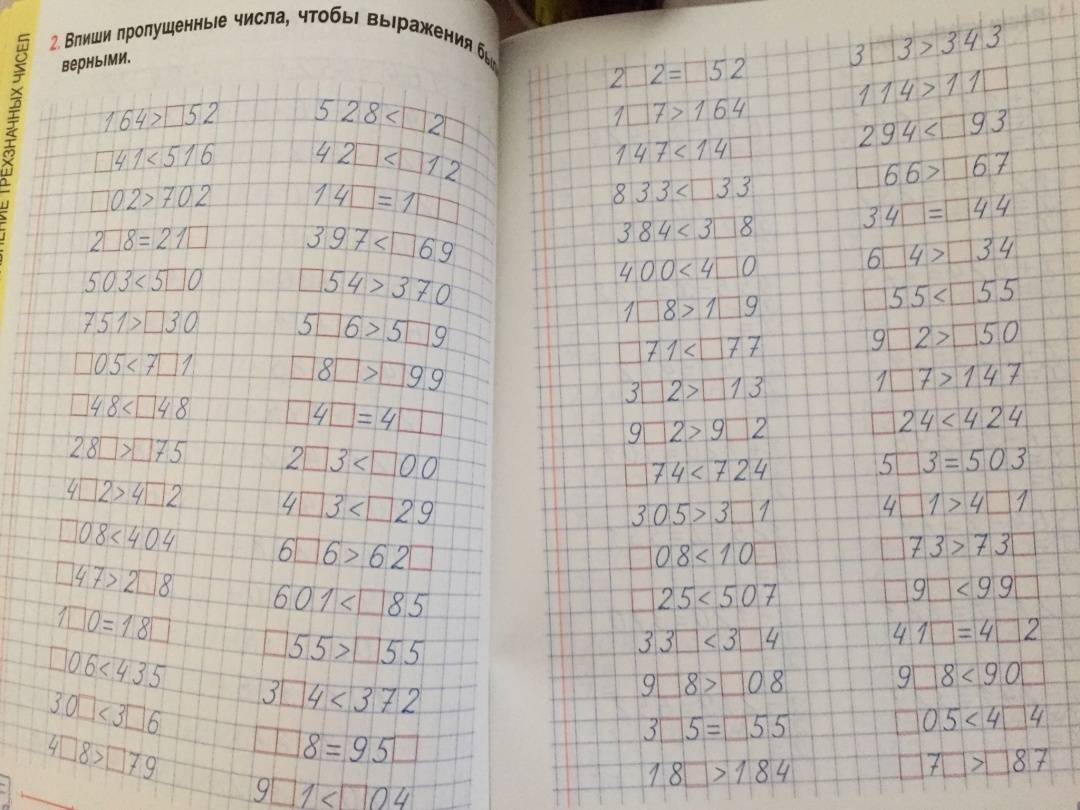 АВНЕНИЕ ТРЕХЗНАЧНЫХ ЧИСЕЛ
2. Впиши пропущенные числа, чтобы выражения был
верными.
164>□52
□41<516
□02>702
2□8=21□
503<5□0
751>□30
□05<7□1
□48<□48
28□>□75
4□2>4□2
□08<404
□47>2□8
1□0=18□
□06<435
30□<3□6
4□8>□79
528<□2□
42□<□12
14□=1□□
397<□69
□54>370
5□6>5□9
□8□>□99
□4□=4□□
2□3<□00
4□3<□29
6□6>62□
601<□85
□55>□55
3□4<372
□□8=95□
9□1<□04
2□2=□52
1□7>164
147<14□
833<□33
384<3□8
400<4□0
1□8>1□9
□71<□77
3□2>□13
9□2>9□2
□74<724
305>3□1
□08<10□
□25<507
33□<3□4
9□8>□08
3□5=□55
18□>184
3□3>343
114>11□
294<□93
□66>□67
34□=□44
6□4>□34
□55<□55
9□2>□50
1□7>147
□24<424
5□3=503
4□1>4□1
□73>73□
□9□<99□
41□=4□2
9□8<90□
□05<4□4
□7□>□87